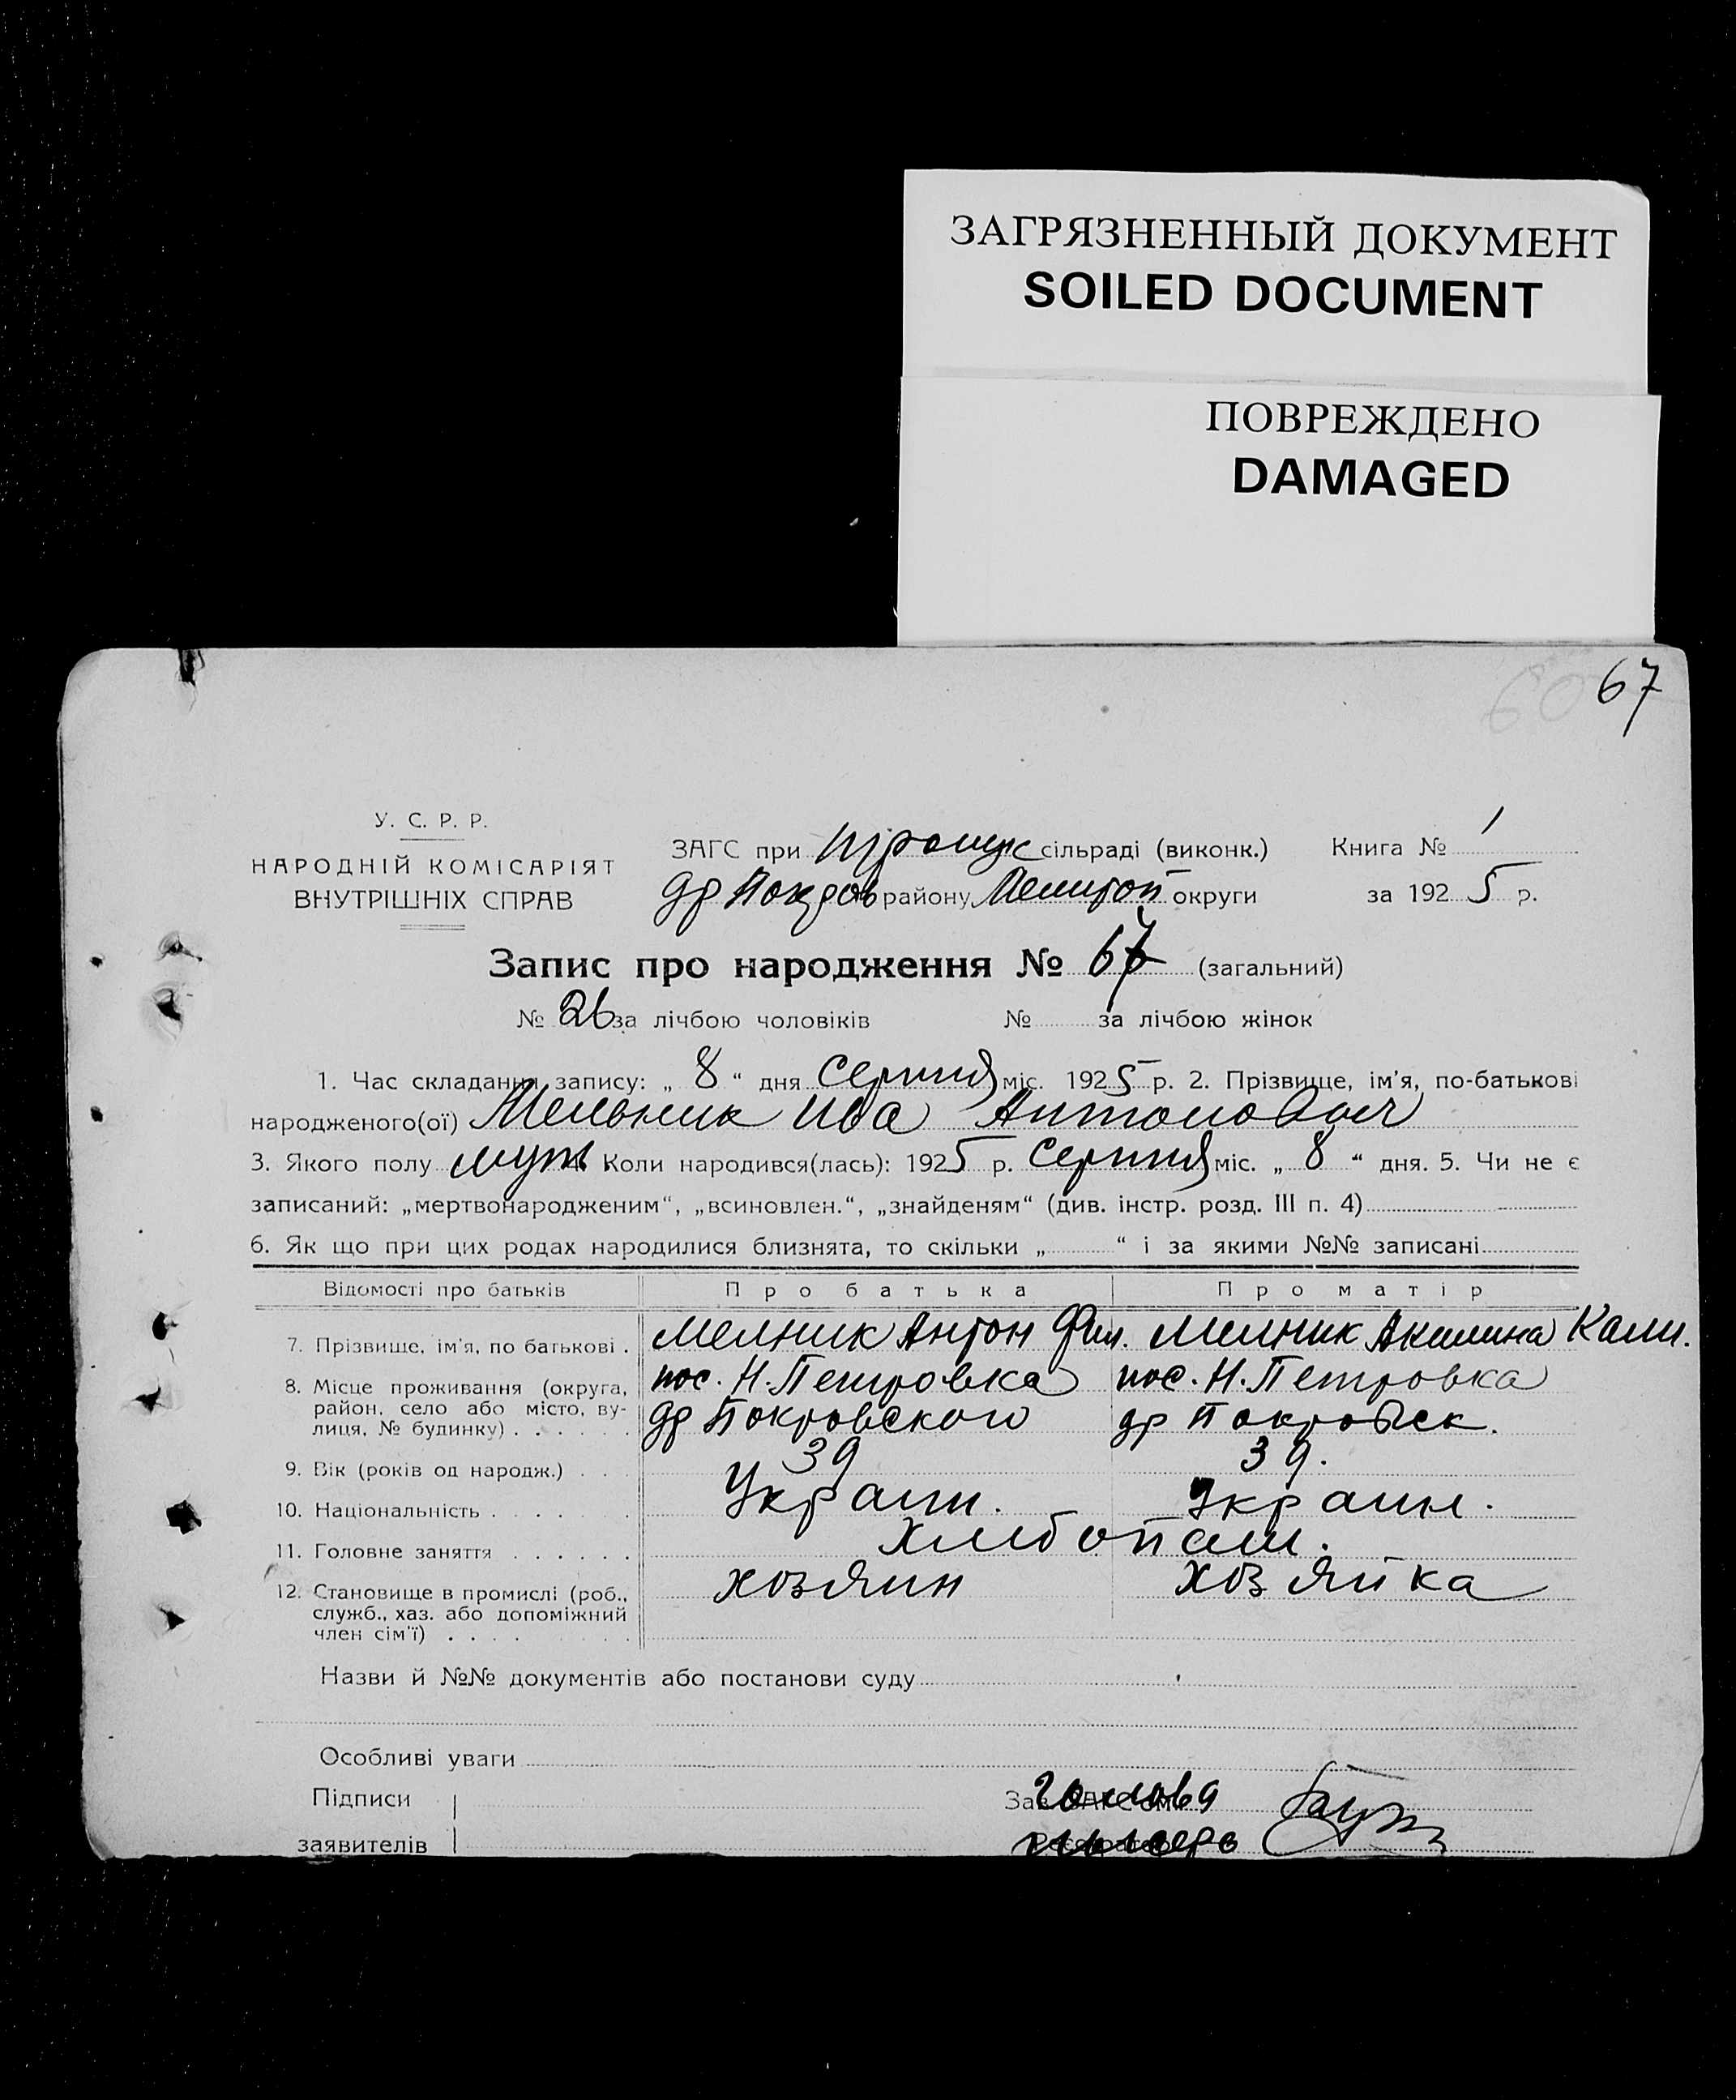 ЗАГРЯЗНЕННЫЙ ДОКУМЕНТ
SOILED DOCUMENT
ПОВРЕЖДЕНО
DAMAGED
60 67
У. С. Р. Р.
НАРОДНІЙ КОМІСАРІЯТ
ВНУТРІШНІХ СПРАВ
ЗАГС при Троицк сільраді (виконк.) Книга № 1
др Покров району Мелитоп округи за 1925 р.
Запис про народження № 67 (загальний)
№ 26 за лічбою чоловіків № за лічбою жінок
1. Час складання запису: „ 8 “ дня Серпня міс. 1925 р. 2. Прізвище, ім'я, по-батькові
народженого(ої) Мельник Ива Антонович
3. Якого полу муж 4. Коли народився(лась): 1925 р. Серпня міс. „ 8 “ дня. 5. Чи не є
записаний: „мертвонародженим“, „всиновлен.“, „знайденям“ (див. інстр. розд. III п. 4)
6. Як що при цих родах народилися близнята, то скільки „ “ і за якими №№ записані
Відомості про батьків Про батька Про матір
7. Прізвище, ім'я, по батькові . Мелник Антон Фил. Мелник Акилина Калин.
8. Місце проживання (округа, район, село або місто, ву-лиця, № будинку) . . . . . . пос. Н. Петровка пос. Н. Петровка
др Покровского др Покровск.
9. Вік (років од народж.) . . . 39 39.
10. Національність . . . . . . Украин. Украин.
11. Головне заняття . . . . . . Хлибопаш.
12. Становище в промислі (роб., служб., хаз. або допоміжний член сім'ї) . . . . хозяин хозяйка
Назви й №№ документів або постанови суду
Особливі уваги
Підписи
заявителів
Зав. ЗАГС'ом голова